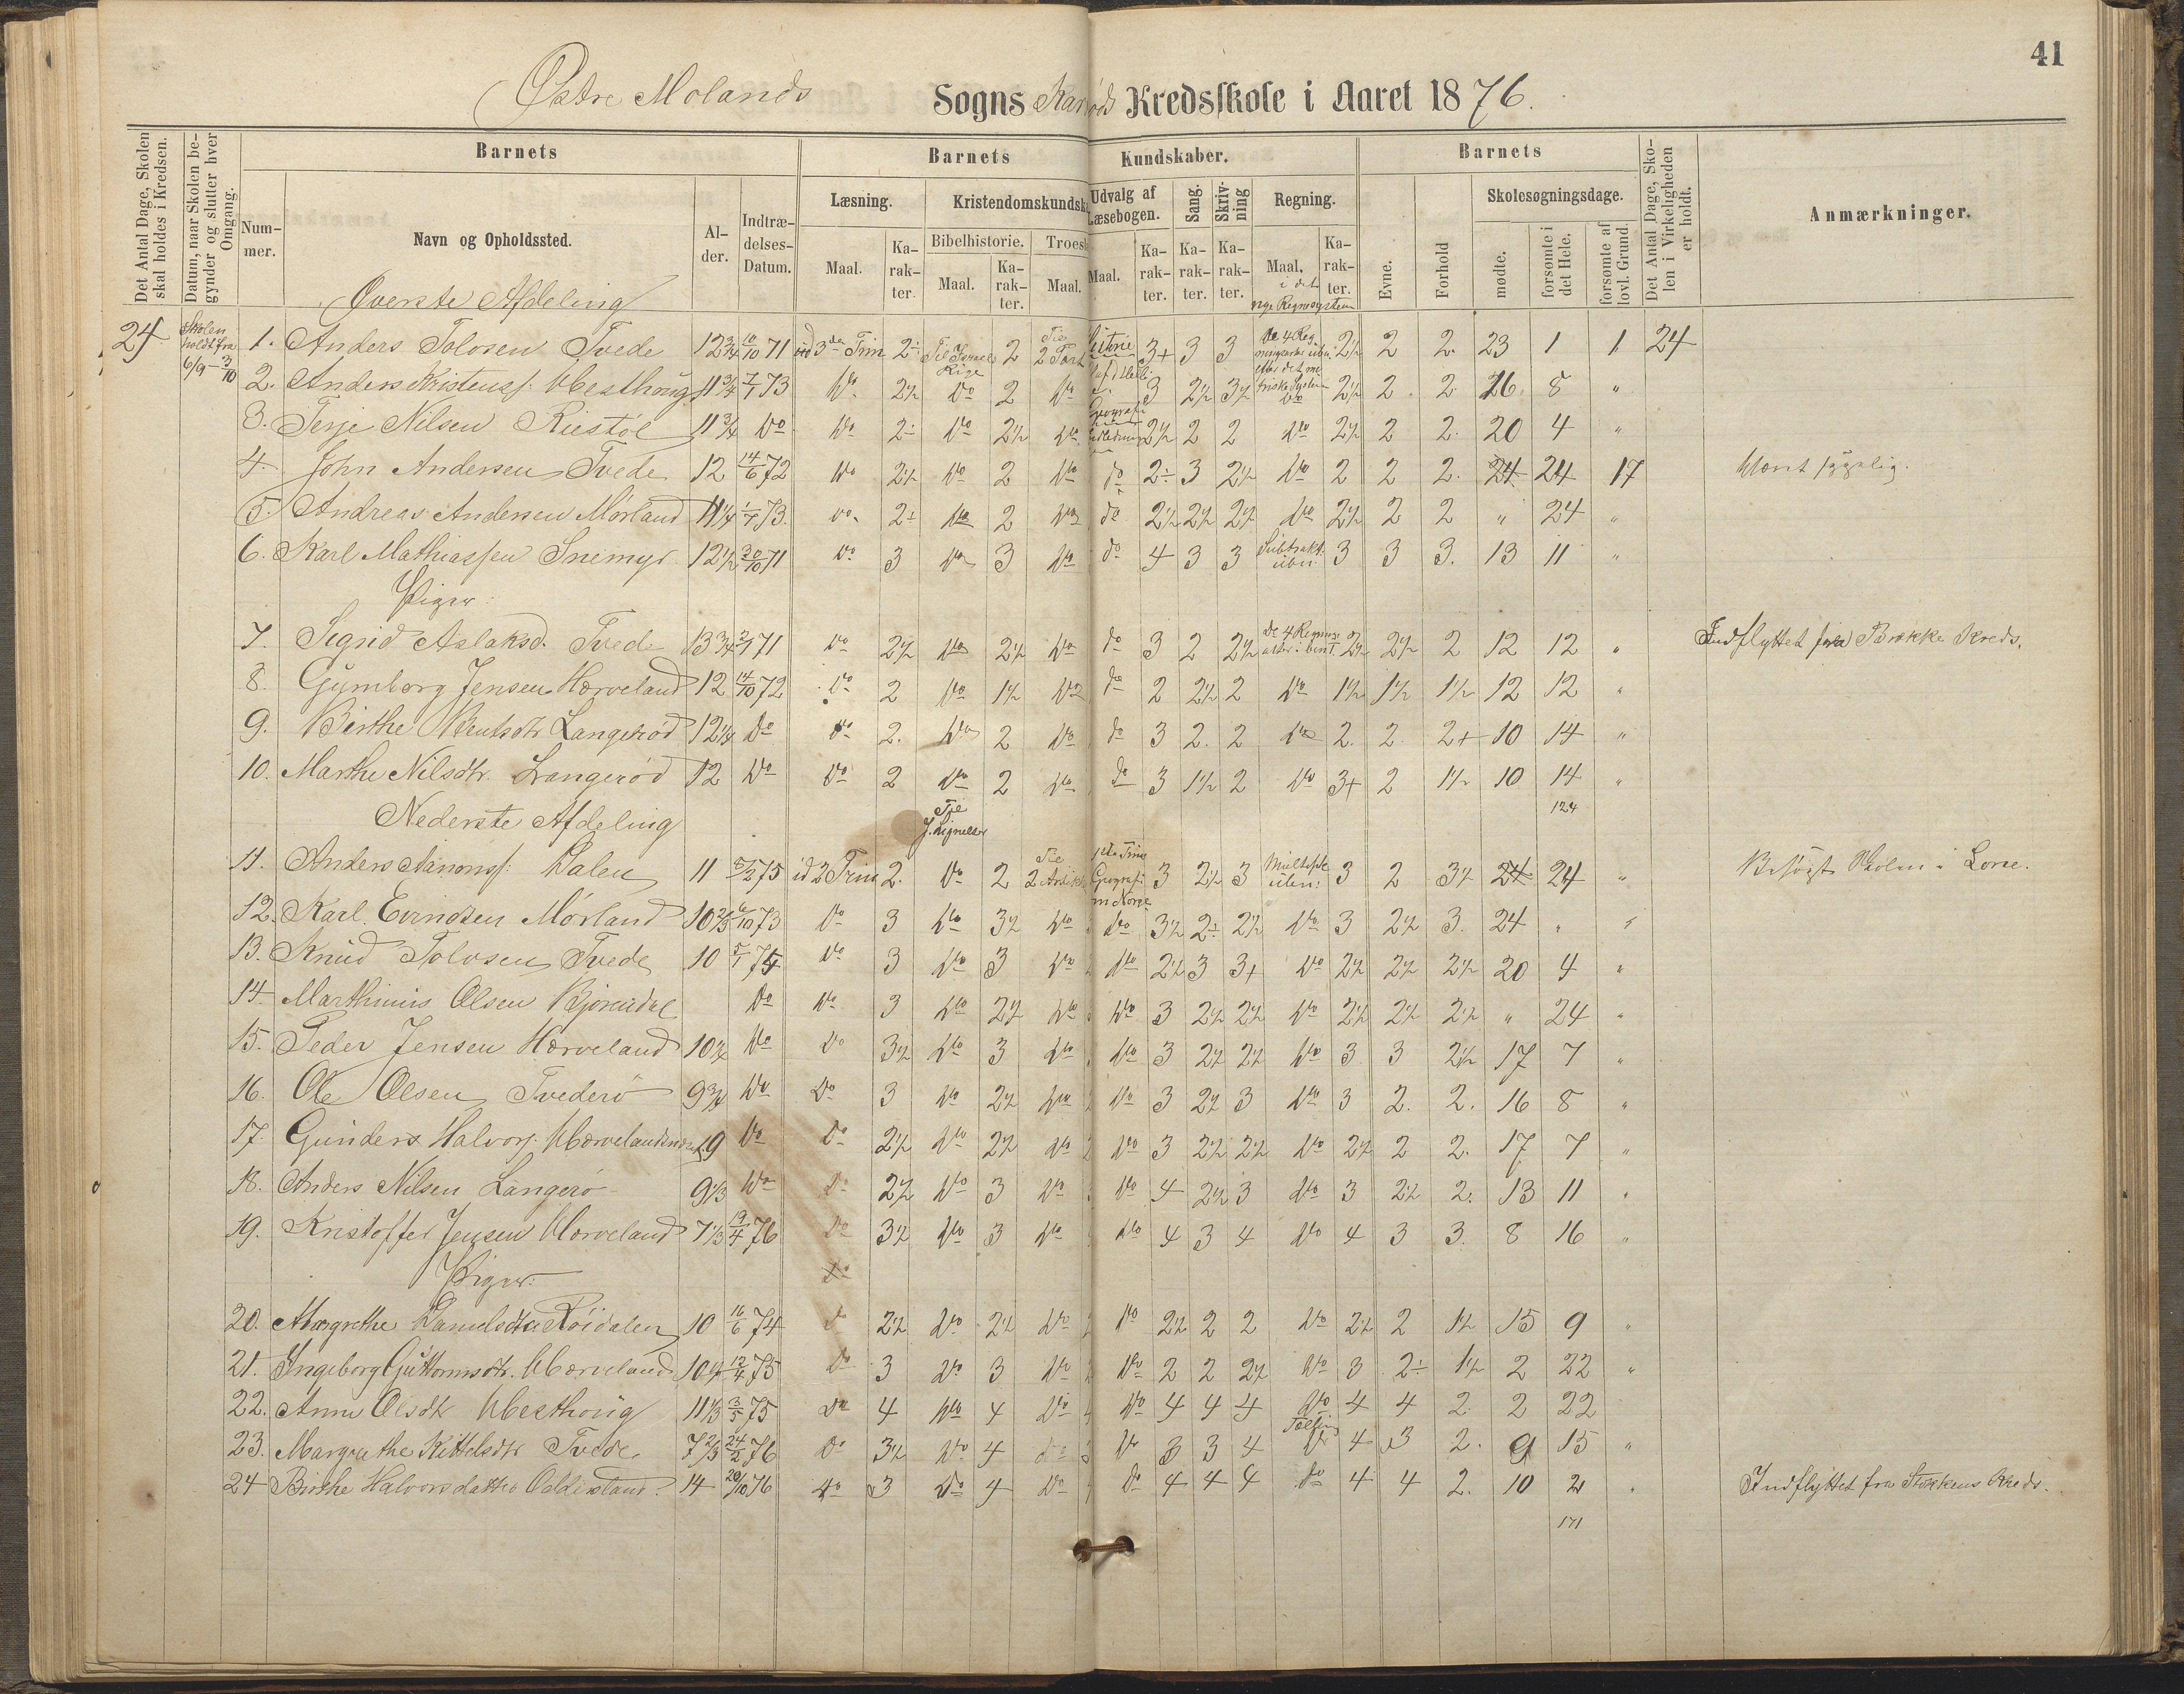 41
Østre Molands Sogns Kredsskole i Aaret 1876.
Det Antal Dage, Skolen skal holdes i Kredsen.
Datum, naar Skolen begynder og slutter hver Omgang.
Barnets
Nummer.
Navn og Opholdssted.
Alder.
Indtrædelses-Datum.
Barnets Kundskaber.
Læsning.
Maal.
Karakter.
Bibelhistorie.
Maal.
Karakter.
Maal.
Udvalg af Læsebogen.
Maal.
Karakter.
Sang.
Karakter.
Skrivning
Karakter.
Regning.
Maal. i det nye Regnesystem
Karakter.
Barnets
Evne.
Forhold
Skolesøgningsdage.
mødte.
forsømte i det Hele.
forsømte af lovl. Grund.
Det Antal Dage, Skolen i Virkeligheden er holdt.
Anmærkninger.
Øverste Afdeling
24 Skolen holdt fra 6/9 - 3/10
1. Anders Tolosen Tvede 12 3/4 10/10 71 3die Trin 2÷ Til Israels Rige 2 3+ 3 3 2 1/2 2 2. 23 1 1 24
2. Anders Kristenss: 11 3/4 7/7 73 Do 2 1/2 Do 2 Do 3 2 1/2 3 1/2 Do 2 1/2 2 2 16 8 "
3. Terje Nilsen Riestøl 11 3/4 Do Do 2÷ Do 2 1/2 Do 2 1/2 2 2 Do 2 1/2 2 2. 20 4 "
4. John Andersen Tvede 12 14/6 72 Do 2 1/2 Do 2 Do do 2÷ 3 2 1/2 Do 2 2 2. 24 24 17 Været sygelig.
5. Andreas Andersen Mørland 11 1/4 1/7 73. Do 2÷ Do 2 Do do 2 1/2 2 1/2 2 1/2 Do 2 1/2 2 2 " 24 "
6. Karl Mathiassen Snemyr 12 1/2 30/10 71 Do 3 Do 3 Do do 4 3 3 Subtrakt. 3 3 3. 13 11 "
Piger:
7. Sigrid Aslaksd. Tvede 13 3/4 2/1 71 Do 2 1/2 Do 2 1/2 Do do 3 2 2 1/2 2 1/2 2 1/2 2 12 12 " Indflyttet fra Brække Kreds.
8. Gumborg Jensen Hærveland 12 14/10 72 Do 2 Do 1 1/2 Do do 2 2 1/2 2 Do 1 1/2 1 1/2 1 1/2 12 12 "
9. Birthe Langerød 12 1/4 Do Do 2. Do 2 Do do 3 2. 2 Do 2. 2. 2+ 10 14 "
10. Marthe Nilsdtr. Langerød 12 Do Do 2 Do 2 Do do 3 1 1/2 2 Do 3+ 2 1 1/2 10 14 "
124
Nederste Afdeling
11. Anders Aanonss: Dalen 11 5/2 75 2 Trin 2. Do 2 3 2 1/2 3 3 2 3 1/2 24 24 " Besøgt Skolen i
12. Karl Evindsen Mørland 10 2/3 6/10 73 Do 3 Do 3 1/2 Do Do 3 1/2 2÷ 2 1/2 Do 3 2 1/2 3. 24 "
13. Knud Tolosen Tvede 10 5/1 74 Do 3 Do 3 Do Do 2 1/2 3 3+ Do 2 1/2 2 1/2 2 1/2 20 4 "
14. Marthinus Olsen Bjorendal Do Do 3 Do 2 1/2 Do Do 3 2 1/2 2 1/2 Do 2 1/2 2 1/2 2 1/2 " 24 "
15. Peder Jensen Hærveland 10 1/4 Do Do 3 1/2 Do 3 Do Do 3 2 1/2 2 1/2 Do 3 3 2 1/2 17 7 "
16. Ole Olsen Tvederø 9 3/4 Do Do 3 Do 2 1/2 Do Do 3 2 1/2 3 Do 3 2. 2. 16 8 "
17. Gunders Halvors: 9 Do Do 2 1/2 Do 2 1/2 Do Do 3 2 1/2 2 1/2 Do 2 1/2 2 2. 17 7 "
18. Anders Nilsen Langerø 9 1/3 Do Do 2 1/2 Do 3 Do Do 4 2 1/2 3 Do 3 2 1/2 2. 13 11 "
19. Kristoffer Jensen Hærveland 7 1/3 19/4 76 Do 3 1/2 Do 3 Do Do 4 3 4 Do 4 3 3. 8 16 "
Piger:
Do
20. Margrethe Danielsdtr Röidalen 10 16/6 74 Do 2 1/2 Do 2 1/2 Do Do 2 1/2 2 2 Do 2 1/2 2 1 1/2 15 9 "
21. Ingeborg Guttormsdtr. Hærveland 10 1/2 12/4 75 Do 3 Do 3 Do Do 2 2 2 1/2 Do 3 2÷ 1 1/2 2 22 "
22. Anne Olsdtr 11 1/3 3/5 75 Do 4 Do 4 Do Do 4 4 4 Do 4 4 2 2 22
23. Margrethe Kittelsdtr Tvede 7 2/3 24/2 76 Do 3 1/2 Do 4 Do Do 3 3 4 Do 4 3 2. 9 15 "
24 Birthe Halvorsdatter 14 20/10 76 Do 3 Do 4 Do Do 4 4 4 Do 4 4 2. 10 2 Indflyttet fra Stokkens Kreds.
171